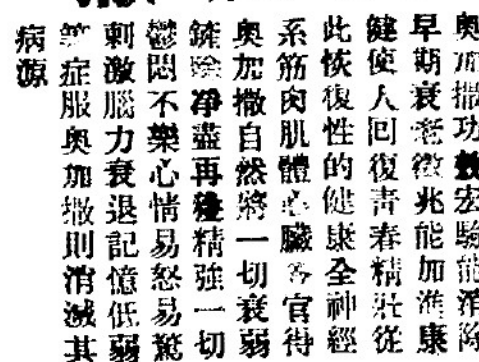 奧加撒功效宏驗能消除
早期衰老徵兆能加進康
健使人回復青春精壯從
此恢復性的健康全神經
系筋肉肌體心臟各官得
奧加撒自然將一切衰弱
鏟除淨盡再種精強一切
鬱悶不樂心情易怒易驚
刺激腦力衰退記憶低弱
等症服奧加撒則消滅其
病源